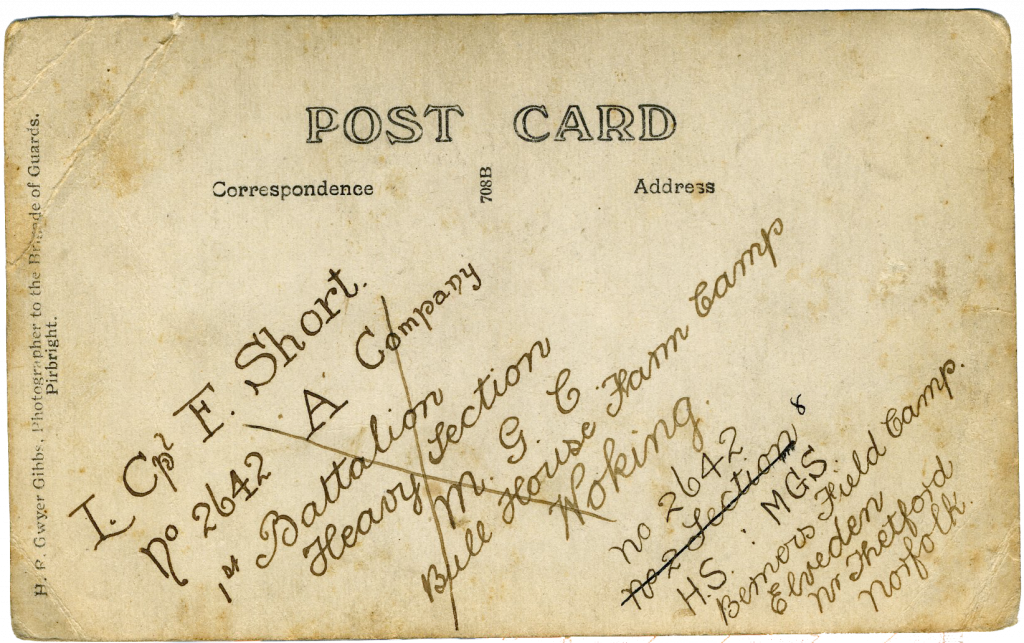 POST CARD
Correspondence
708B
Address
H. R. Gwyer Gibbs, Photographer to the Brigade of Guards.
Pirbright.
L. Cpl F. Short.
No 2642 A Company
1st Battalion
Heavy Section
M. G. C
Bull House Farm Camp
Woking.
no 2642
no 2 Section 8
H.S. : MGS.
Bernors Field Camp.
Elveden
Nr Thetford
Norfolk.